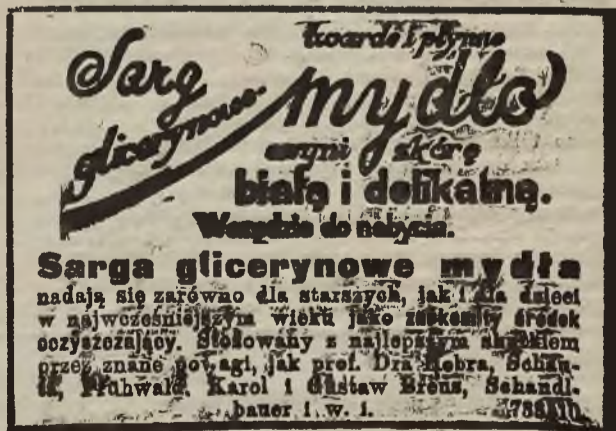 twarde i płynne
Sarg
glicerynowe.
mydło
czyni skórę
białą i delikatną.
Wszędzie do nabycia.
Sarga glicerynowe mydła
nadają się zarówno dla starszych, jak i dla dzieci
w najwcześniejszym wieku jako znakomity środek
oczyszczający. Stosowany z najlepszym skutkiem
przez znane powagi, jak prof. Dra Hebra, Schau-
ta, Frühwald, Karol i Gustaw Breus, Schandl.
bauer i. w. i.